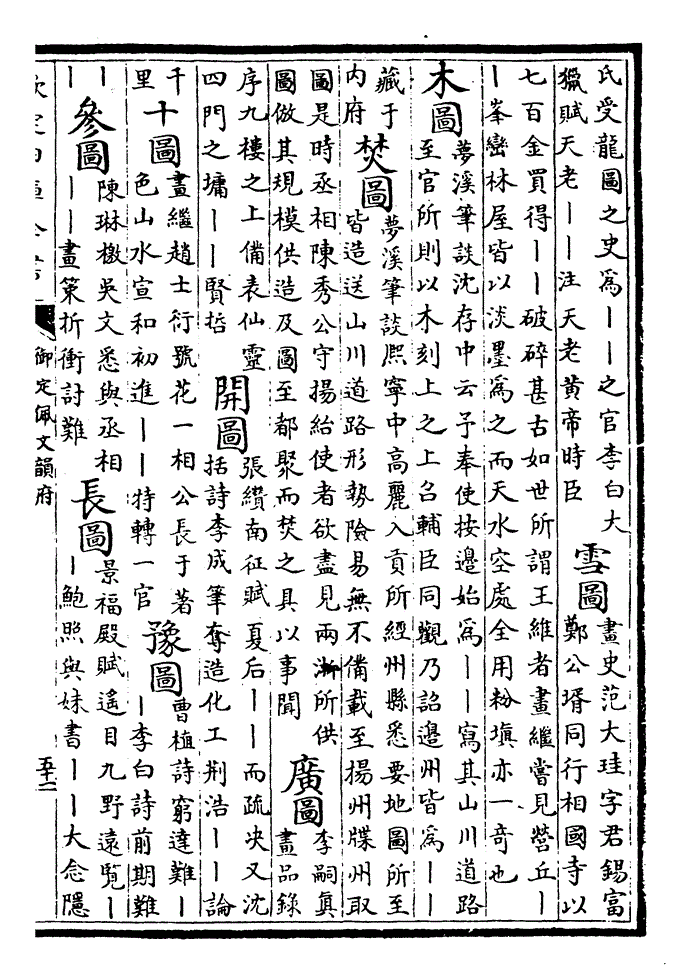 氏受龍圖之史爲丨丨之官李白大
獵賦天老丨丨注天老黄帝時臣
雪圖
畫史范大珪字君錫富
鄭公壻同行相國寺以
七百金買得丨丨破碎甚古如世所謂王維者畫繼嘗見營丘丨
丨峯巒林屋皆以淡墨爲之而天水空處全用粉塡亦一奇也
木圖
夢溪筆談沈存中云予奉使按邊始爲丨丨寫其山川道路
至官所則以木刻上之上召輔臣同觀乃詔邊州皆爲丨丨
藏于
内府
焚圖
夢溪筆談熙寧中高麗入貢所經州縣悉要地圖所至
皆造送山川道路形勢險易無不備載至揚州牒州取
圖是時丞相陳秀公守揚紿使者欲盡見兩淛所供
圖倣其規模供造及圖至都聚而焚之具以事聞
廣圖
李嗣真
畫品錄
序九樓之上備表仙靈
四門之墉丨丨賢哲
開圖
張纘南征賦夏后丨丨而疏决又沈
括詩李成筆奪造化工荆浩丨丨論
千
里
十圖
畫繼趙士衍號花一相公長于著
色山水宣和初進丨丨特轉一官
豫圖
曹植詩窮達難丨
丨李白詩前期難
丨
丨
參圖
陳琳檄吳文悉與丞相
丨丨畫策折衝討難
長圖
景福殿賦遙目九野遠覽丨
丨鮑照與妹書丨丨大念隱
欽定四庫全書
御定佩文韻府
五十二